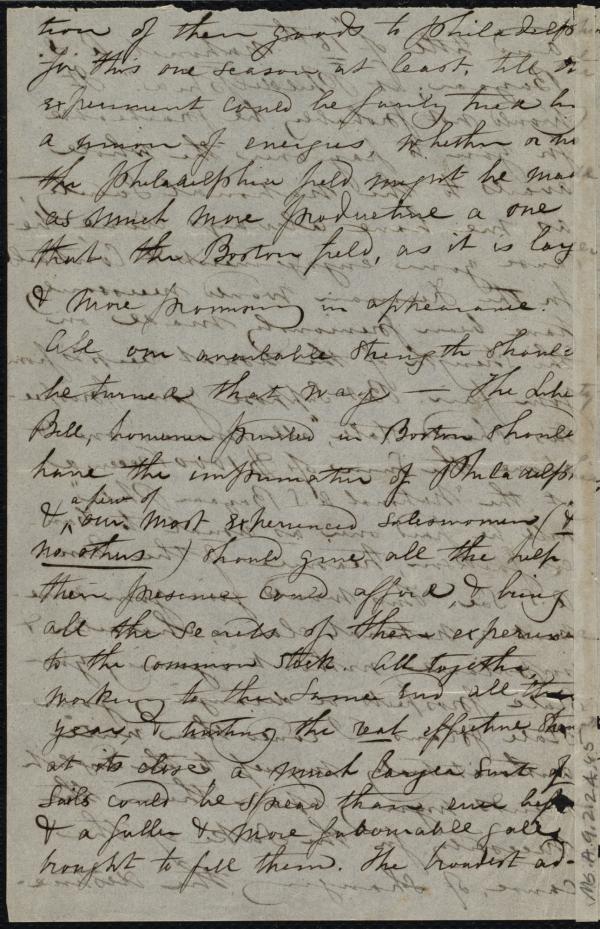 tion of their goods to Philadelph
for this one season, at least, till
experiment could be fairly tried by
a union of energies, whether or no
the Philadelphia field might be mad
as much more productive a one
that the Boston field, as it is larg
& more promising in appearance.
All our available strength should
be turned that way — The Libe
Bell, however printed in Boston should
have the imprimatur of Philadelph
a few of
& our most experienced saleswomen (&
no others) should give all the help
their presence could afford, & bring
all the secrets of their experience
to the common stock. All together
working to the same end all the
year & uniting the real effective
at its close, a much larger suit of
sails could be spread than ever befo
& a fuller & more favourable gale
brought to fill them. The broadest ad-
MS.A.9.2.24.45